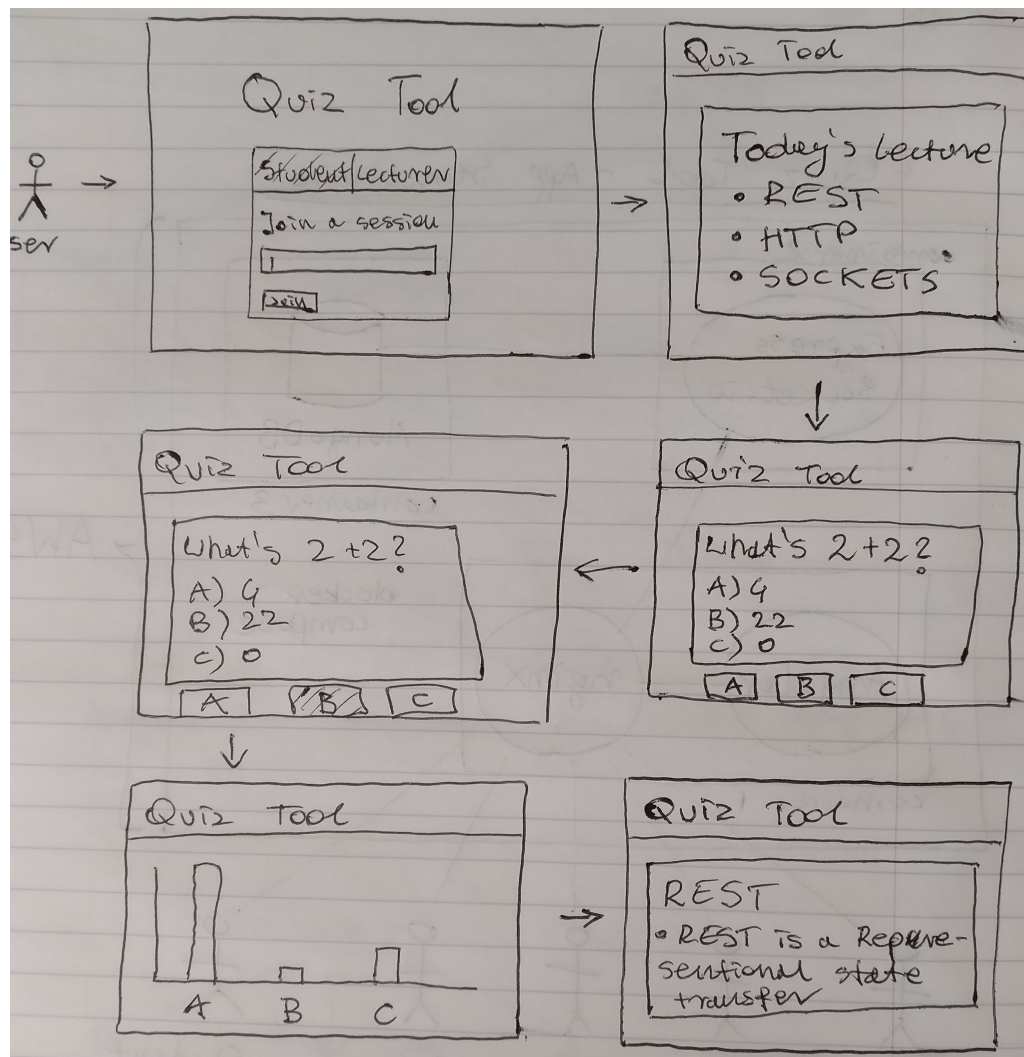 ser
Quiz Tool
Student|Lecturer
Join a session
Join
Quiz Tool
Today's Lecture
• REST
• HTTP
• SOCKETS
Quiz Tool
What's 2+2?
A) 4
B) 22
C) 0
A B C
Quiz Tool
What's 2+2?
A) 4
B) 22
C) 0
A B C
Quiz Tool
A B C
Quiz Tool
REST
• REST is a Repre-
sentional state
transfer